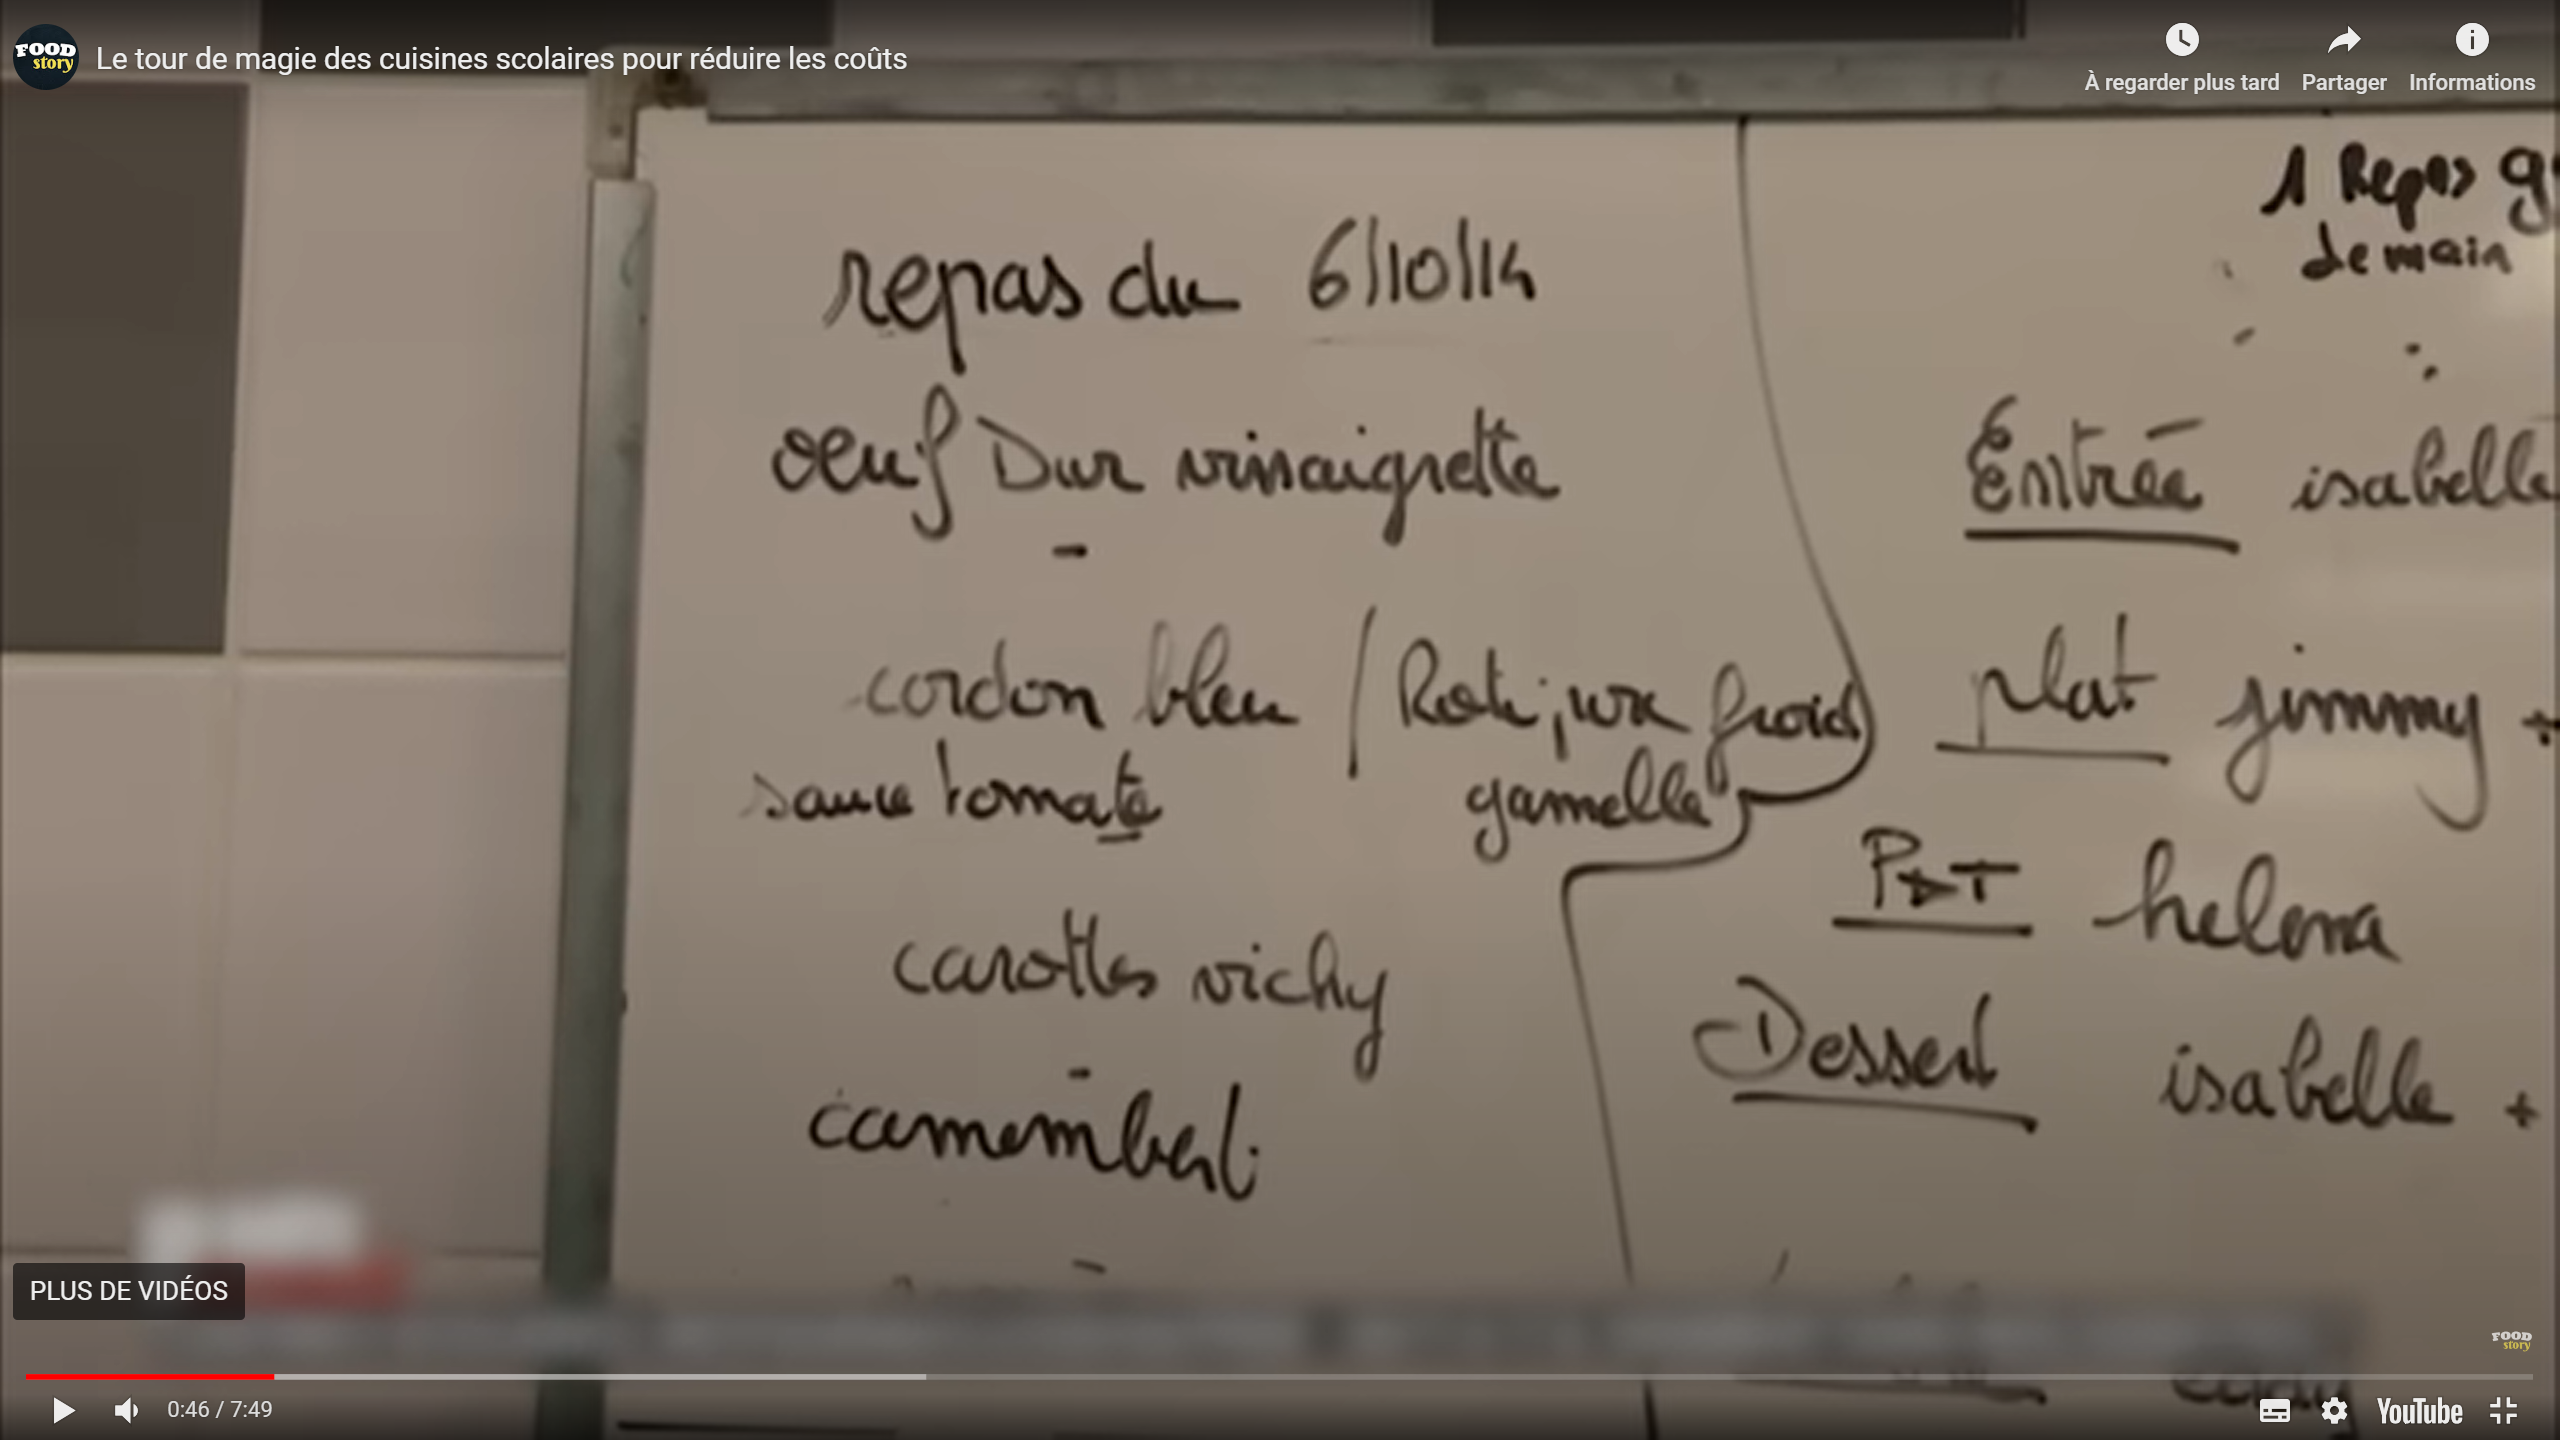 FOOD story
Le tour de magie des cuisines scolaires pour réduire les coûts
À regarder plus tard
Partager
Informations
repas du 6/10/14
oeuf Dur vinaigrette
-
cordon bleu / Roti jura froid
sauce tomate gamelle
carottes vichy
-
camembert
1 Repas
demain
Entrée isabelle
plat jimmy +
PDT helena
Dessert isabelle +
PLUS DE VIDÉOS
FOOD story
0:46 / 7:49
YouTube